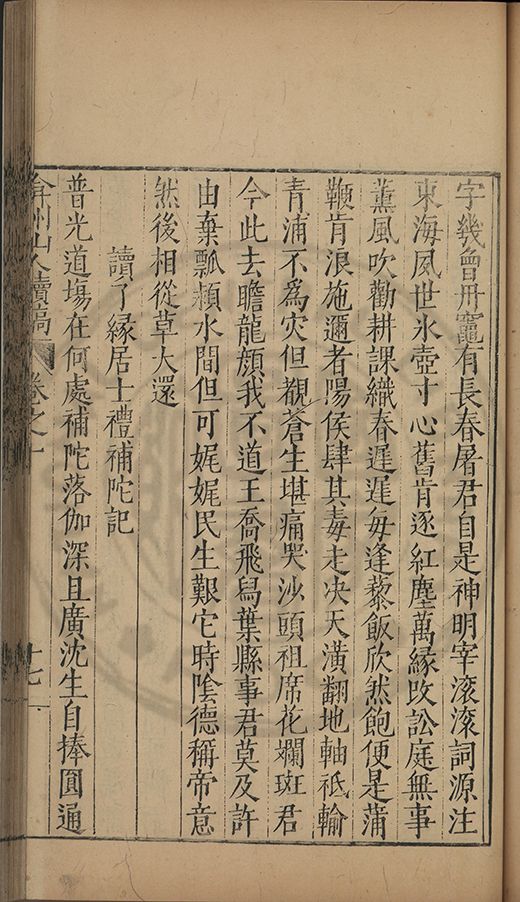 字幾曾丹竈有長春屠君自是神明宰滚滚詞源注
東海風世氷壺寸心舊肯逐紅塵萬縁改訟庭無事
薫風吹勸耕課織春遲遲每逢藜飯欣然飽便是蒲
鞭肯浪施邇者陽侯肆其毒走决天潢翻地軸祇輸
青浦不爲灾但覩蒼生堪痛哭沙頭祖席花斕斑君
今此去瞻龍顔我不道王喬飛舄葉縣事君莫及許
由棄瓢潁水間但可娓娓民生艱它時陰德稱帝意
然後相從草大還
讀了縁居士禮補陀記
普光道塲在何處補陀落伽深且廣沈生自捧圓通
弇州山人續稿 卷之十 十七